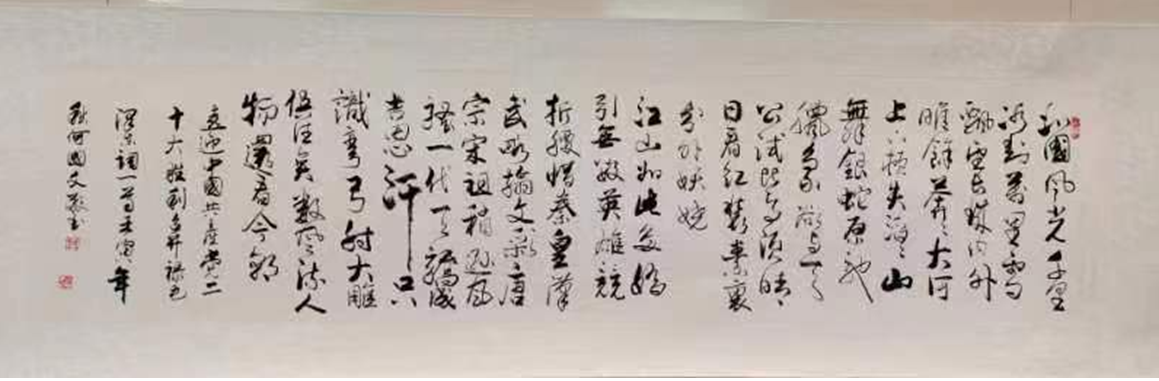 北國風光千里
冰封萬里雪
飄望長城內外
唯餘莽莽大河
上下頓失滔滔山
舞銀蛇原馳
蠟象欲與天
公試比高須晴
日看紅裝素裹
分外妖嬈
江山如此多嬌
引無數英雄競
折腰惜秦皇漢
武略輸文采唐
宗宋祖稍遜風
騷一代天驕成
吉思汗只
識彎弓射大雕
俱往矣數風流人
物還看今朝
喜迎中國共產黨二
十大勝利召開 毛
澤東詞一首 年
何國文敬書